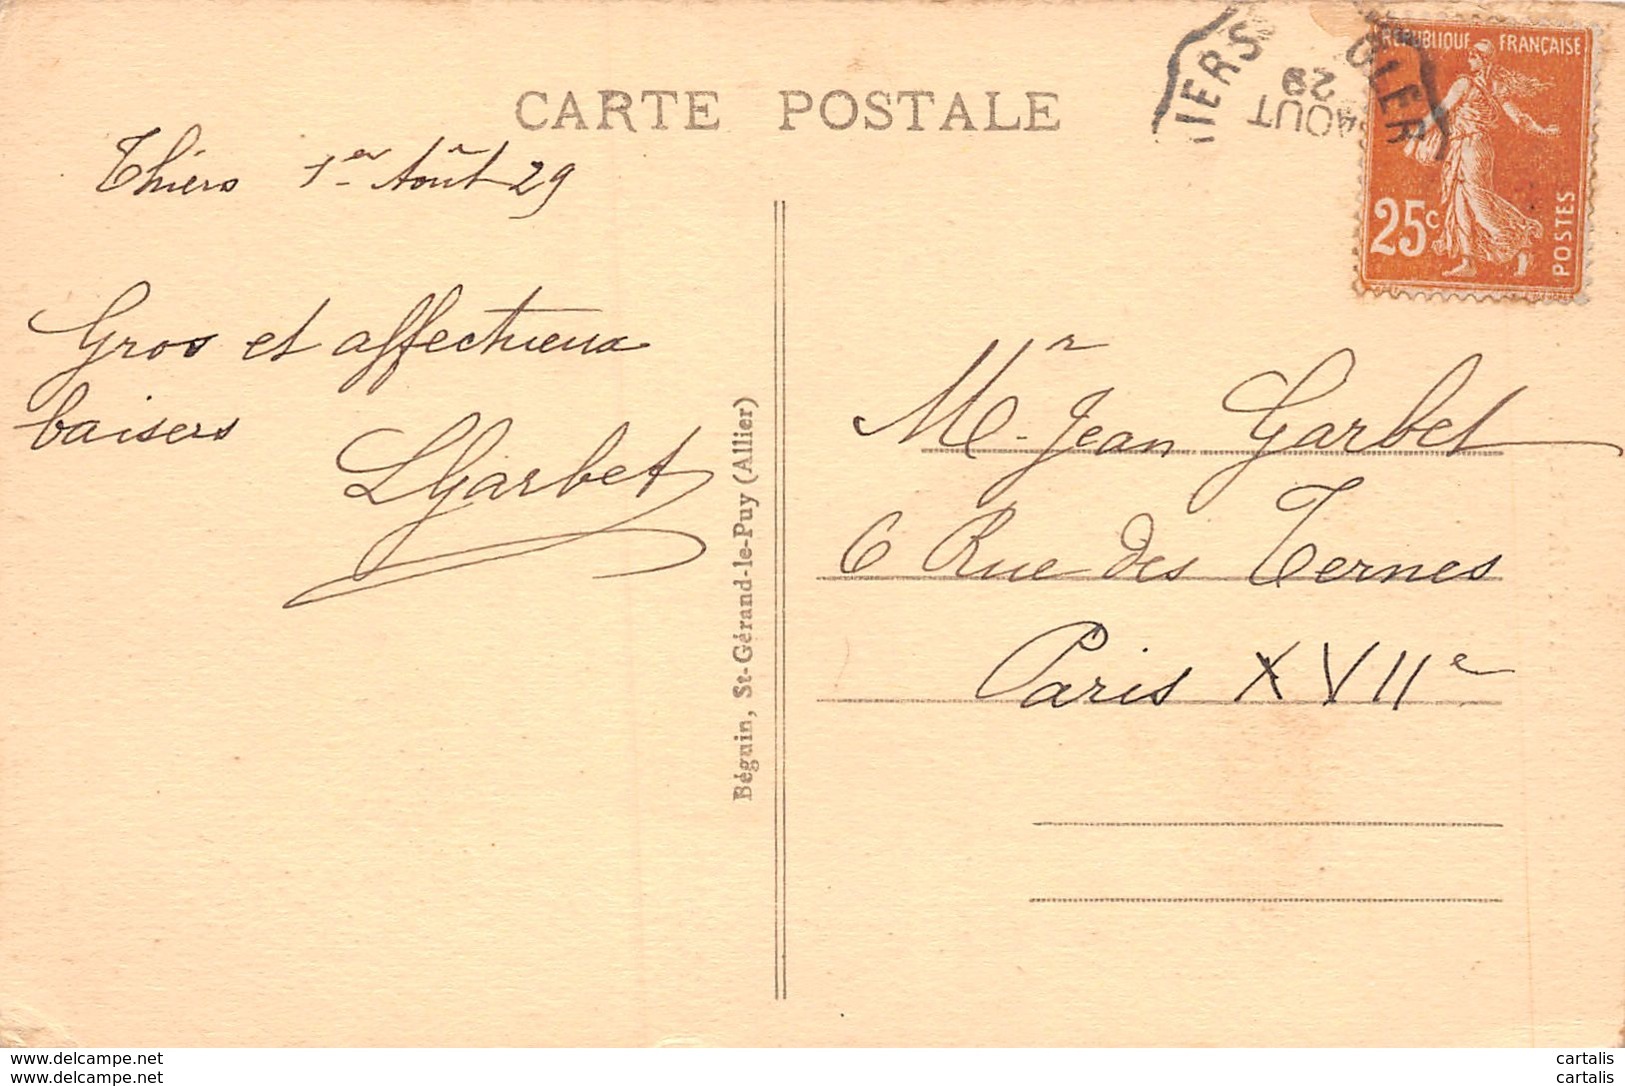 CARTE POSTALE
Thiers 1er Août 29
Gros et affectueux
baisers
LGarbet
Béguin, St-Gérand-le-Puy (Allier)
IERS
AOUT
29
REPUBLIQUE FRANÇAISE
25c
POSTES
Mr Jean Garbet
6 Rue des Ternes
Paris XVIIe
www.delcampe.net
www.delcampe.net
cartalis
cartalis